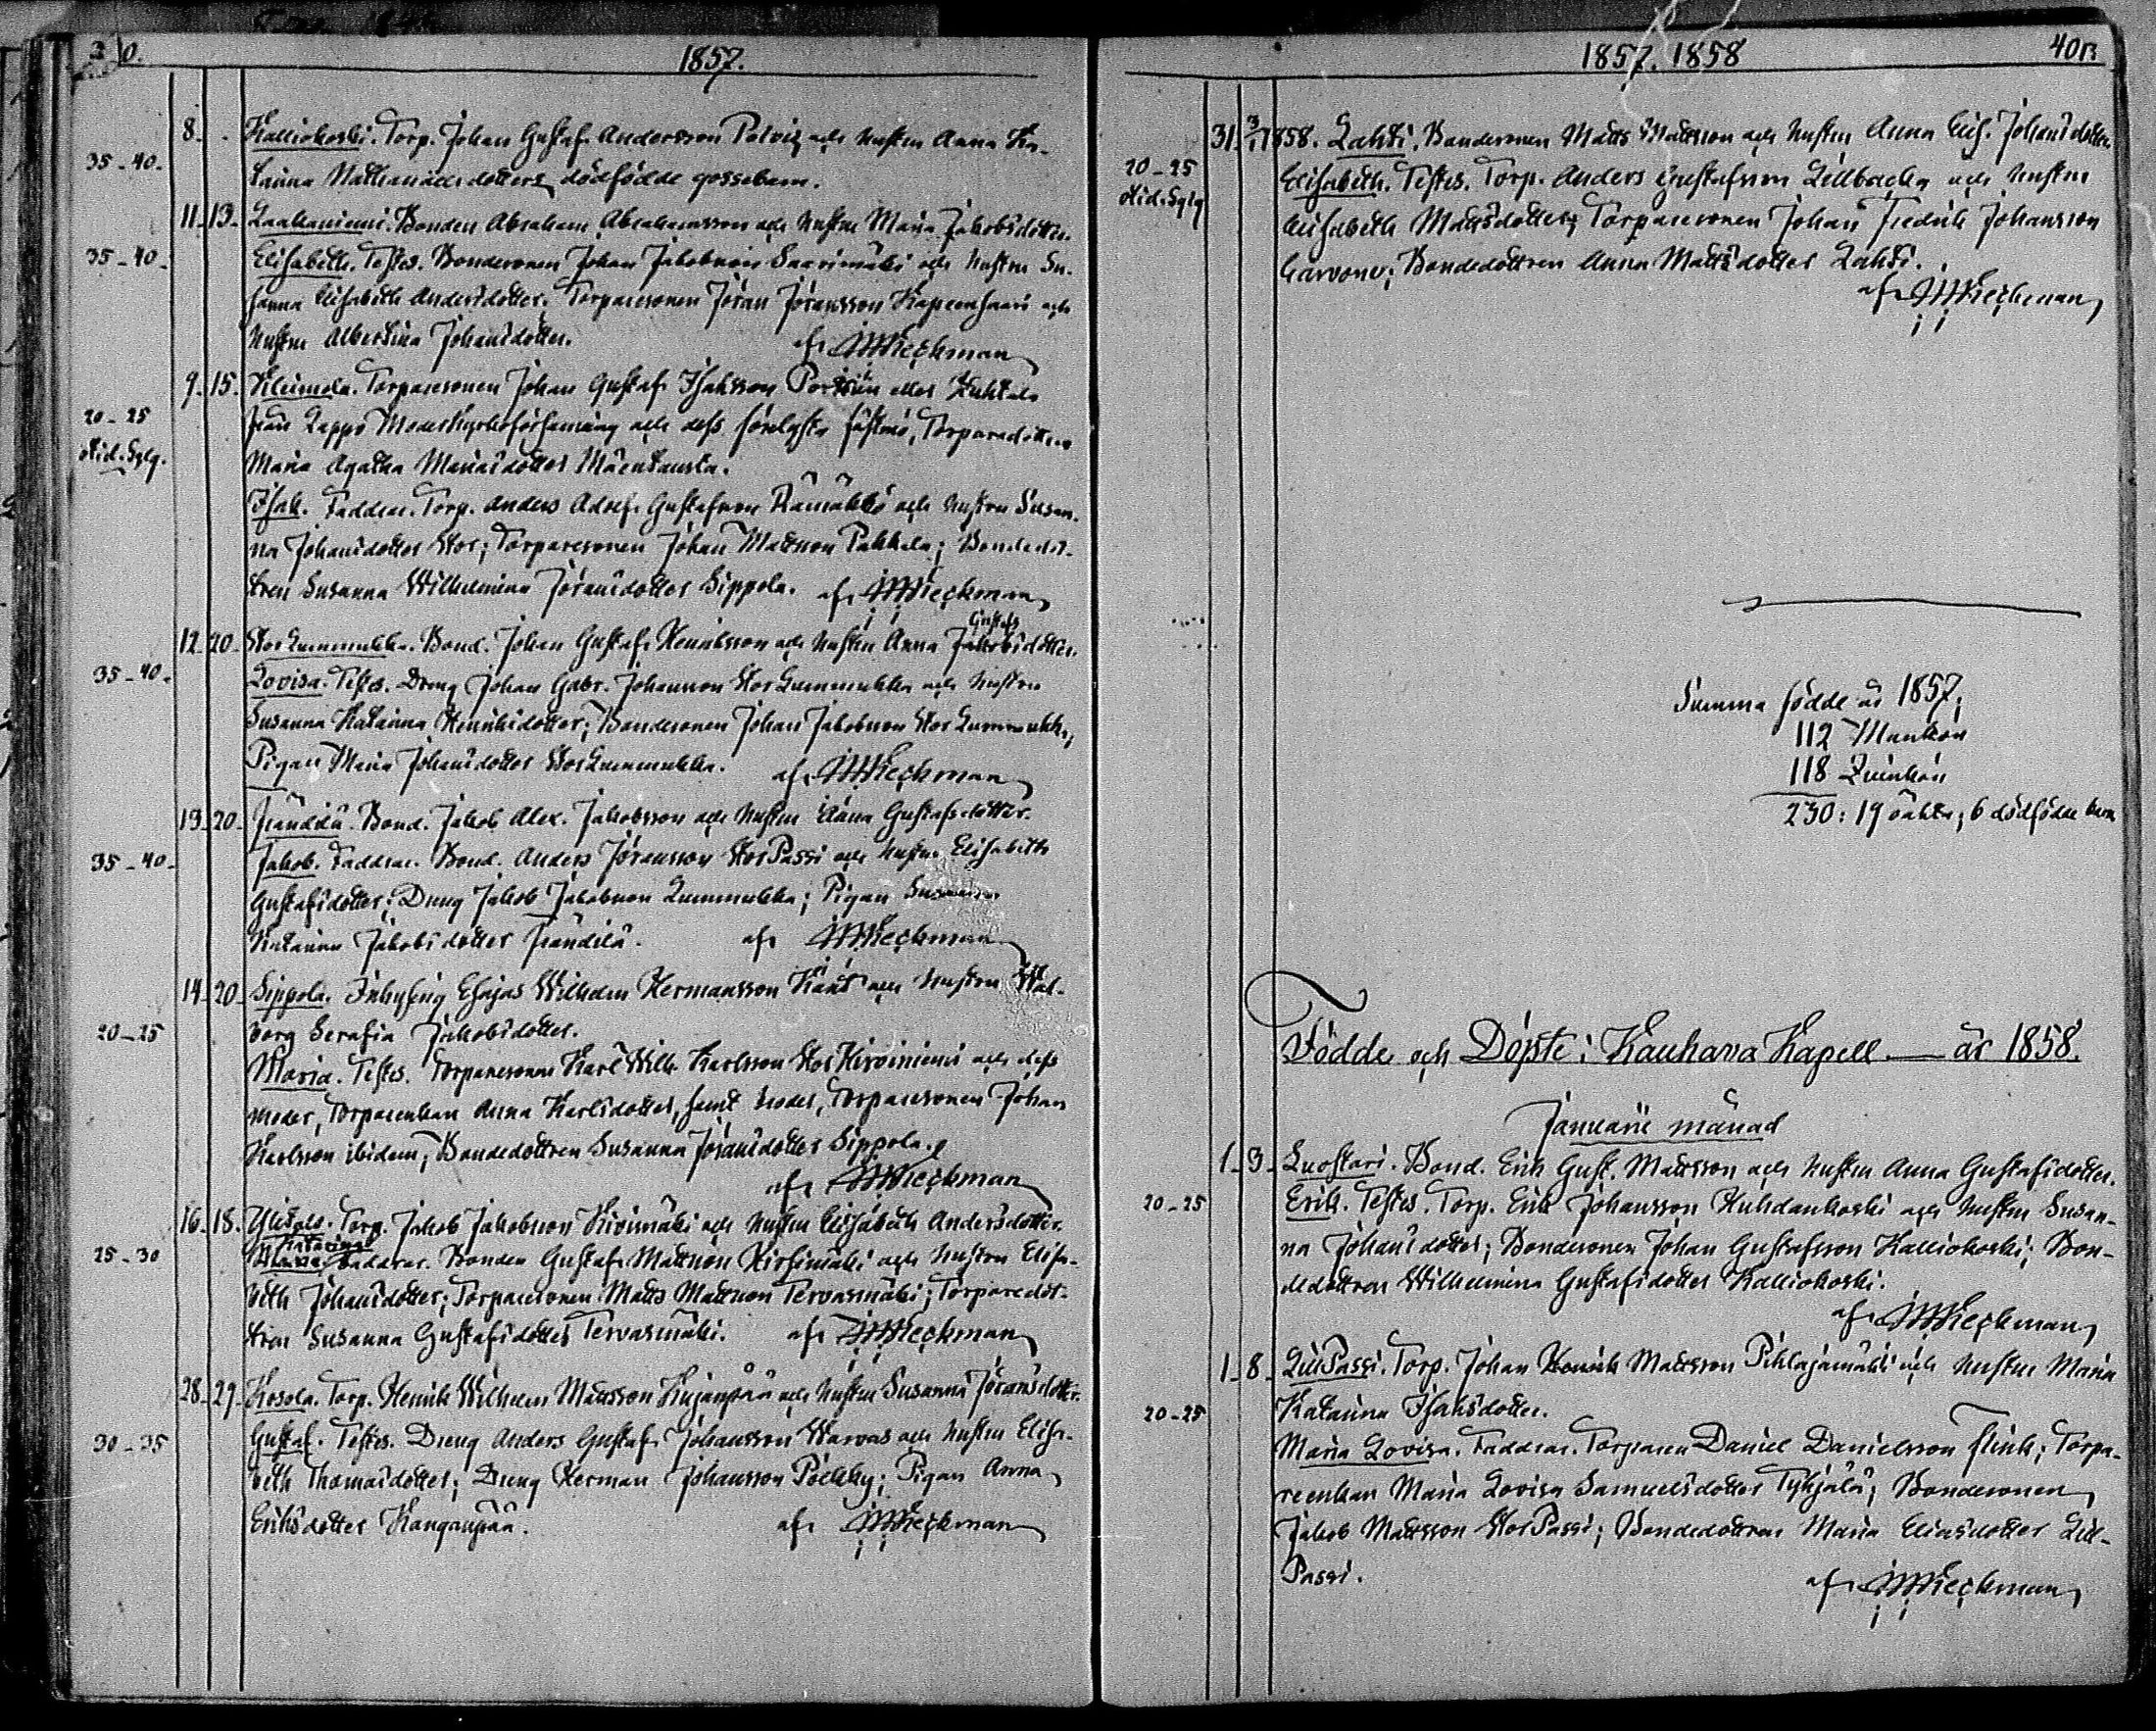 1857.
8. Kalliokoski. Torp. Johan Gustaf Andersson Polvi och hustru Anna Ka-
35-40. tarina Matthiaedotters dödfödde gossebarn.
11. 13. Laakaniemi. Bonden Abraham Abrahamsson och hustru Maria Jakobsdotter.
35-40. Elisabeth. Testes. Bondesonen Johan Jakobsson Saarimäki och hustru Su-
sanna Elisabeth Andersdotter. Torparesonen Jöran Jöransson och
hustru Albertina Johansdotter. af Wieckman
9. 15. Kleimola. Torparesonen Johan Gustaf Isaksson eller Huhtala
20-25 från Lappo Moderkyrkoförsamling och dess förelysta fästmö, Torparedottern
Maria Agatha Mariasdotter Mäentausta.
Isak. Faddrar. Torp. Anders Adolf Gustafsson Rämäkkö och hustru Susan-
na Johansdotter Stor; Torparesonen Johan Mattsson Pakkala; Bondedot-
tren Susanna Wilhelmina Jöransdotter Sippola. af Wieckman
Gustafs
12. 20. Stor Lummukka. Bond. Johan Gustaf Henriksson och hustru Anna Jakobsdotter.
35-40. Lovisa. Testes. Dreng Johan Gabr. Johansson Stor Lummukka och hustru
Susanna Katarina Henriksdotter; Bondesonen Johan Jakobsson Stor Lummukka,
Pigan Maria Johansdotter Stor Lummukka. af Wieckman
13. 20. Frändilä. Bond. Jakob Alex. Jakobsson och hustru Gustafsdotter.
35-40. Jakob. Faddrar. Bond. Anders Jöransson Stor Passi och hustru Elisabeth
Gustafsdotter; Dreng Jakob Jakobsson Lummukka; Pigan Susanna
Katarina Jakobsdotter Frändilä. af Wieckman
14. 20. Sippola. Inhysing Esajas Wilhelm Hermansson och hustru Wal-
20-25 borg Serafia Jakobsdotter.
Maria. Testes. Torparesonen Karl Wilh. Karlsson Stor Kirviniemi och dess
moder, Torpareenkan Anna Karlsdotter, samt broder, Torparesonen Johan
Karlsson ibidem; Bondedottren Susanna Jöransdotter Sippola.
af Wieckman
16. 18. Ylitalo. Torp. Jakob Jakobsson Kivimäki och hustru Elisabeth Andersdotter.
Katarina
25-30 Faddrar. Bonden Gustaf Mattsson Kirsimäki och hustru Elisa-
beth Johansdotter; Torparesonen Matts Mattsson Tervasmäki; Torparedot-
tren Susanna Gustafsdotter Tervasmäki. af Wieckman
28. 29. Kosola. Torp. Henrik Wilhelm Mattsson Kujanpää och hustru Susanna Jöransdotter.
30-35 Gustaf. Testes. Dreng Anders Gustaf Johansson Warvas och hustru Elisa-
beth Thomasdotter; Dreng Herman Johansson Pöckky; Pigan Anna
Eriksdotter Kangaspää. af Wieckman
1857. 1858
31. 3/1 1858. Lahti. Bondesonen Matts Mattsson och hustru Anna Elis. Johansdotter.
20-25 Elisabeth. Testes. Torp. Anders Gustafsson Lillbacka och hustru
Elisabeth Mattsdotter; Torparesonen Johan Fredrik Johansson
Garvone; Bondedottren Anna Mattsdotter Lahti.
af Wieckman
Summa födde år 1857;
112 Mankön
118 Quinkön
230: 19 oäkta; 6 dödfödde barn
Födde och Döpte i Kauhava Kapell — år 1858.
Januarii månad
1. 3. Luostari. Bond. Erik Gust. Mattsson och hustru Anna Gustafsdotter.
20-25 Erik. Testes. Torp. Erik Johansson Huhdankoski och hustru Susan-
na Johansdotter; Bondesonen Johan Gustafsson Kalliokoski; Bon-
dedottren Wilhelmina Gustafsdotter Kalliokoski.
af Wieckman
1. 8. Lill Passi. Torp. Johan Henrik Mattsson Pihlajamäki och hustru Maria
20-25 Katarina Isaksdotter.
Maria Lovisa. Faddrar. Torparen Daniel Danielsson Flink; Torpa-
reenkan Maria Lovisa Samuelsdotter Tyhjälä; Bondesonen
Jakob Mattsson Stor Passi; Bondedottren Maria Eliasdotter Lill-
Passi. af Wieckman